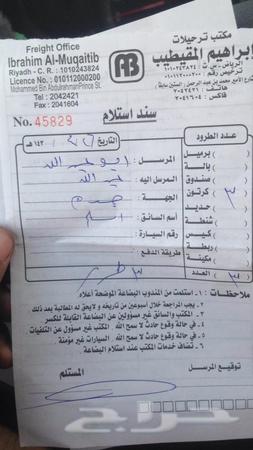 Freight Office
Ibrahim Al-Muqaitib
Riyadh - C. R. : 1010243824
Licence No. : 010112000200
Mohammed Bin AbdulrahmanPrince St.
Tel : 2042421
Fax : 2041604
مكتب ترحيلات
إبراهيم المقيطيب
الرياض - س.ت : ١٠١٠٢٤٣٨٢٤
ترخيص رقم : ٠١٠١١٢٠٠٠٢٠٠
هاتف : ٢٠٤٢٤٢١
فاكس : ٢٠٤١٦٠٤
AB
سند استلام
No. 45829
التاريخ / / ١٤هـ
المرسل : ابو عبد الله
المرسل اليه : عبد الله
الجهة :
اسم السائق :
رقم السيارة :
طريقة الدفع :
عدد الطرود
برميل
بالة
صندوق
كرتون ٣
حديد
شنطة
كيس
ربطة
مكينة
العدد ٣
ملاحظات : ١ - استلمت من المندوب البضاعة الموضحة أعلاه
٢ - يجب المراجعة خلال أسبوعين من تاريخه و لايحق له المطالبة بعد ذلك
٣ - المكتب غير مسؤولين عن البضاعة القابلة للكسر
٤ - في حالة وقوع حادث لا سمح الله المكتب غير مسؤول عن التلفيات
٥ - في حالة وقوع حادث لا سمح الله السيارات غير مؤمنة
٦ - تضاف خدمات المكتب عند استلام البضاعة.
توقيع المرسل
المستلم
حراج